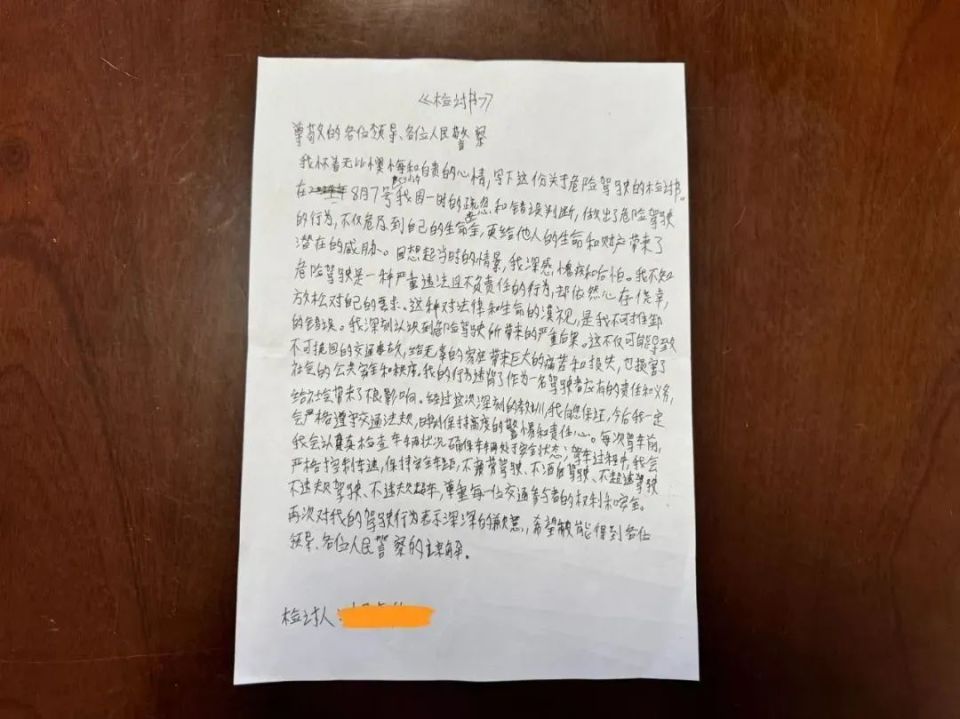 《检讨书》
尊敬的各位领导、各位人民警察
我怀着无比懊悔和自责的心情,写下这份关于危险驾驶的检讨书。
在 8月7号 我因一时的疏忽和错误判断,做出了危险驾驶
的行为,不仅危及到自己的生命安全,更给他人的生命和财产带来了
潜在的威胁。回想起当时的情景,我深感懊疚和后怕。我不知
危险驾驶是一种严重违法且不负责任的行为,却依然心存侥幸,
放松对自己的要求。这种对法律和生命的漠视,是我不可推卸
的错误。我深刻认识到危险驾驶所带来的严重后果。这不仅可能导致
不可挽回的交通事故,给无辜的家庭带来巨大的痛苦和损失,也损害了
社会的公共安全和秩序。我的行为违背了作为一名驾驶者应有的责任和义务,
给社会带来了不良影响。经过这次深刻的教训,我向您保证,今后我一定
会严格遵守交通法规,时刻保持高度的警惕和责任心。每次驾车前,
我会认真检查车辆状况确保车辆处于安全状态;驾车过程中,我会
严格控制车速,保持安全车距,不疲劳驾驶、不酒后驾驶、不超速驾驶
不违规驾驶、不违规超车,尊重每一位交通参与者的权利和安全。
再次对我的驾驶行为表示深深的歉意,希望能得到各位
领导、各位人民警察的谅解。
检讨人: